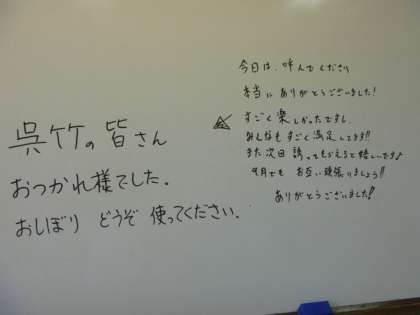 呉竹の皆さん
おつかれ様でした.
おしぼり どうぞ 使ってください.
今日は、呼んでくださり
本当にありがとうございました!
すごく楽しかったですし
みんなもすごく満足してます!!
また次回誘ってもらえると嬉しいです♪
9月でも お互い頑張りましょう!!
ありがとうございました!!